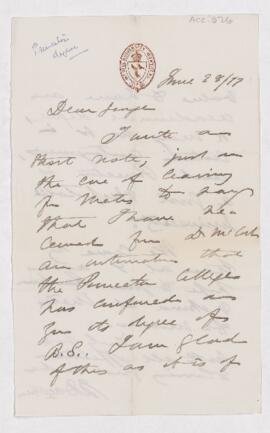 ACC. 326
Princeton
degree
June 28/77
Dear George
I write a
short note, just on
the eve of leaving
for to say
that I have re-
ceived from Dr McCosh
an intimation that
the Princeton College
has conferred on
you its degree of
B.S.. I am glad
of this as it is of